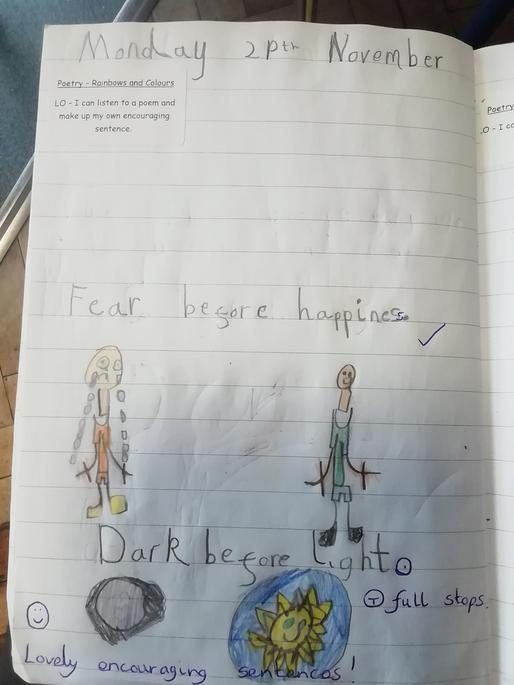 Monday 2pth November
Poetry - Rainbows and Colours
LO - I can listen to a poem and
make up my own encouraging
sentence.
Poetry
.O - I ca
Fear before happiness.
Dark before light.
T full stops.
Lovely encouraging sentences!